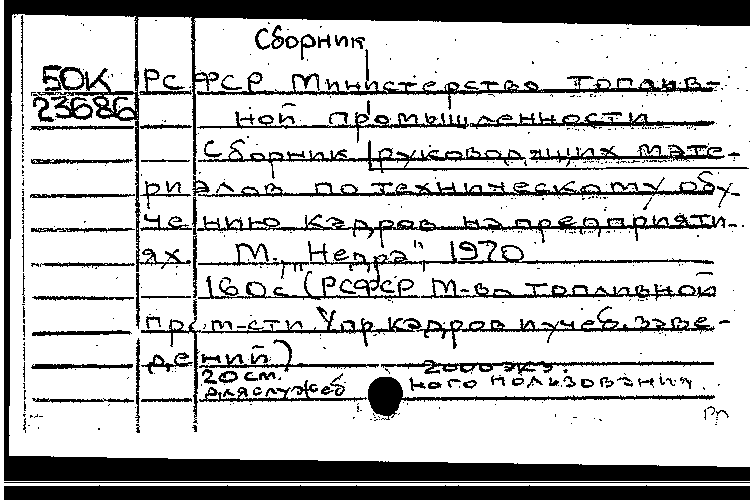 Сборник
50К РСФСР Министерство топлив-
23686 ной промышленности
Сборник руководящих мате-
риалов по техническому обу-
чению кадров на предприяти-
ях. М., "Недра", 1970
160с (РСФСР М-во топливной
пром-сти. Упр. кадров и учеб. заве-
дений).
20 см. 2000 экз.
для служебного пользования.